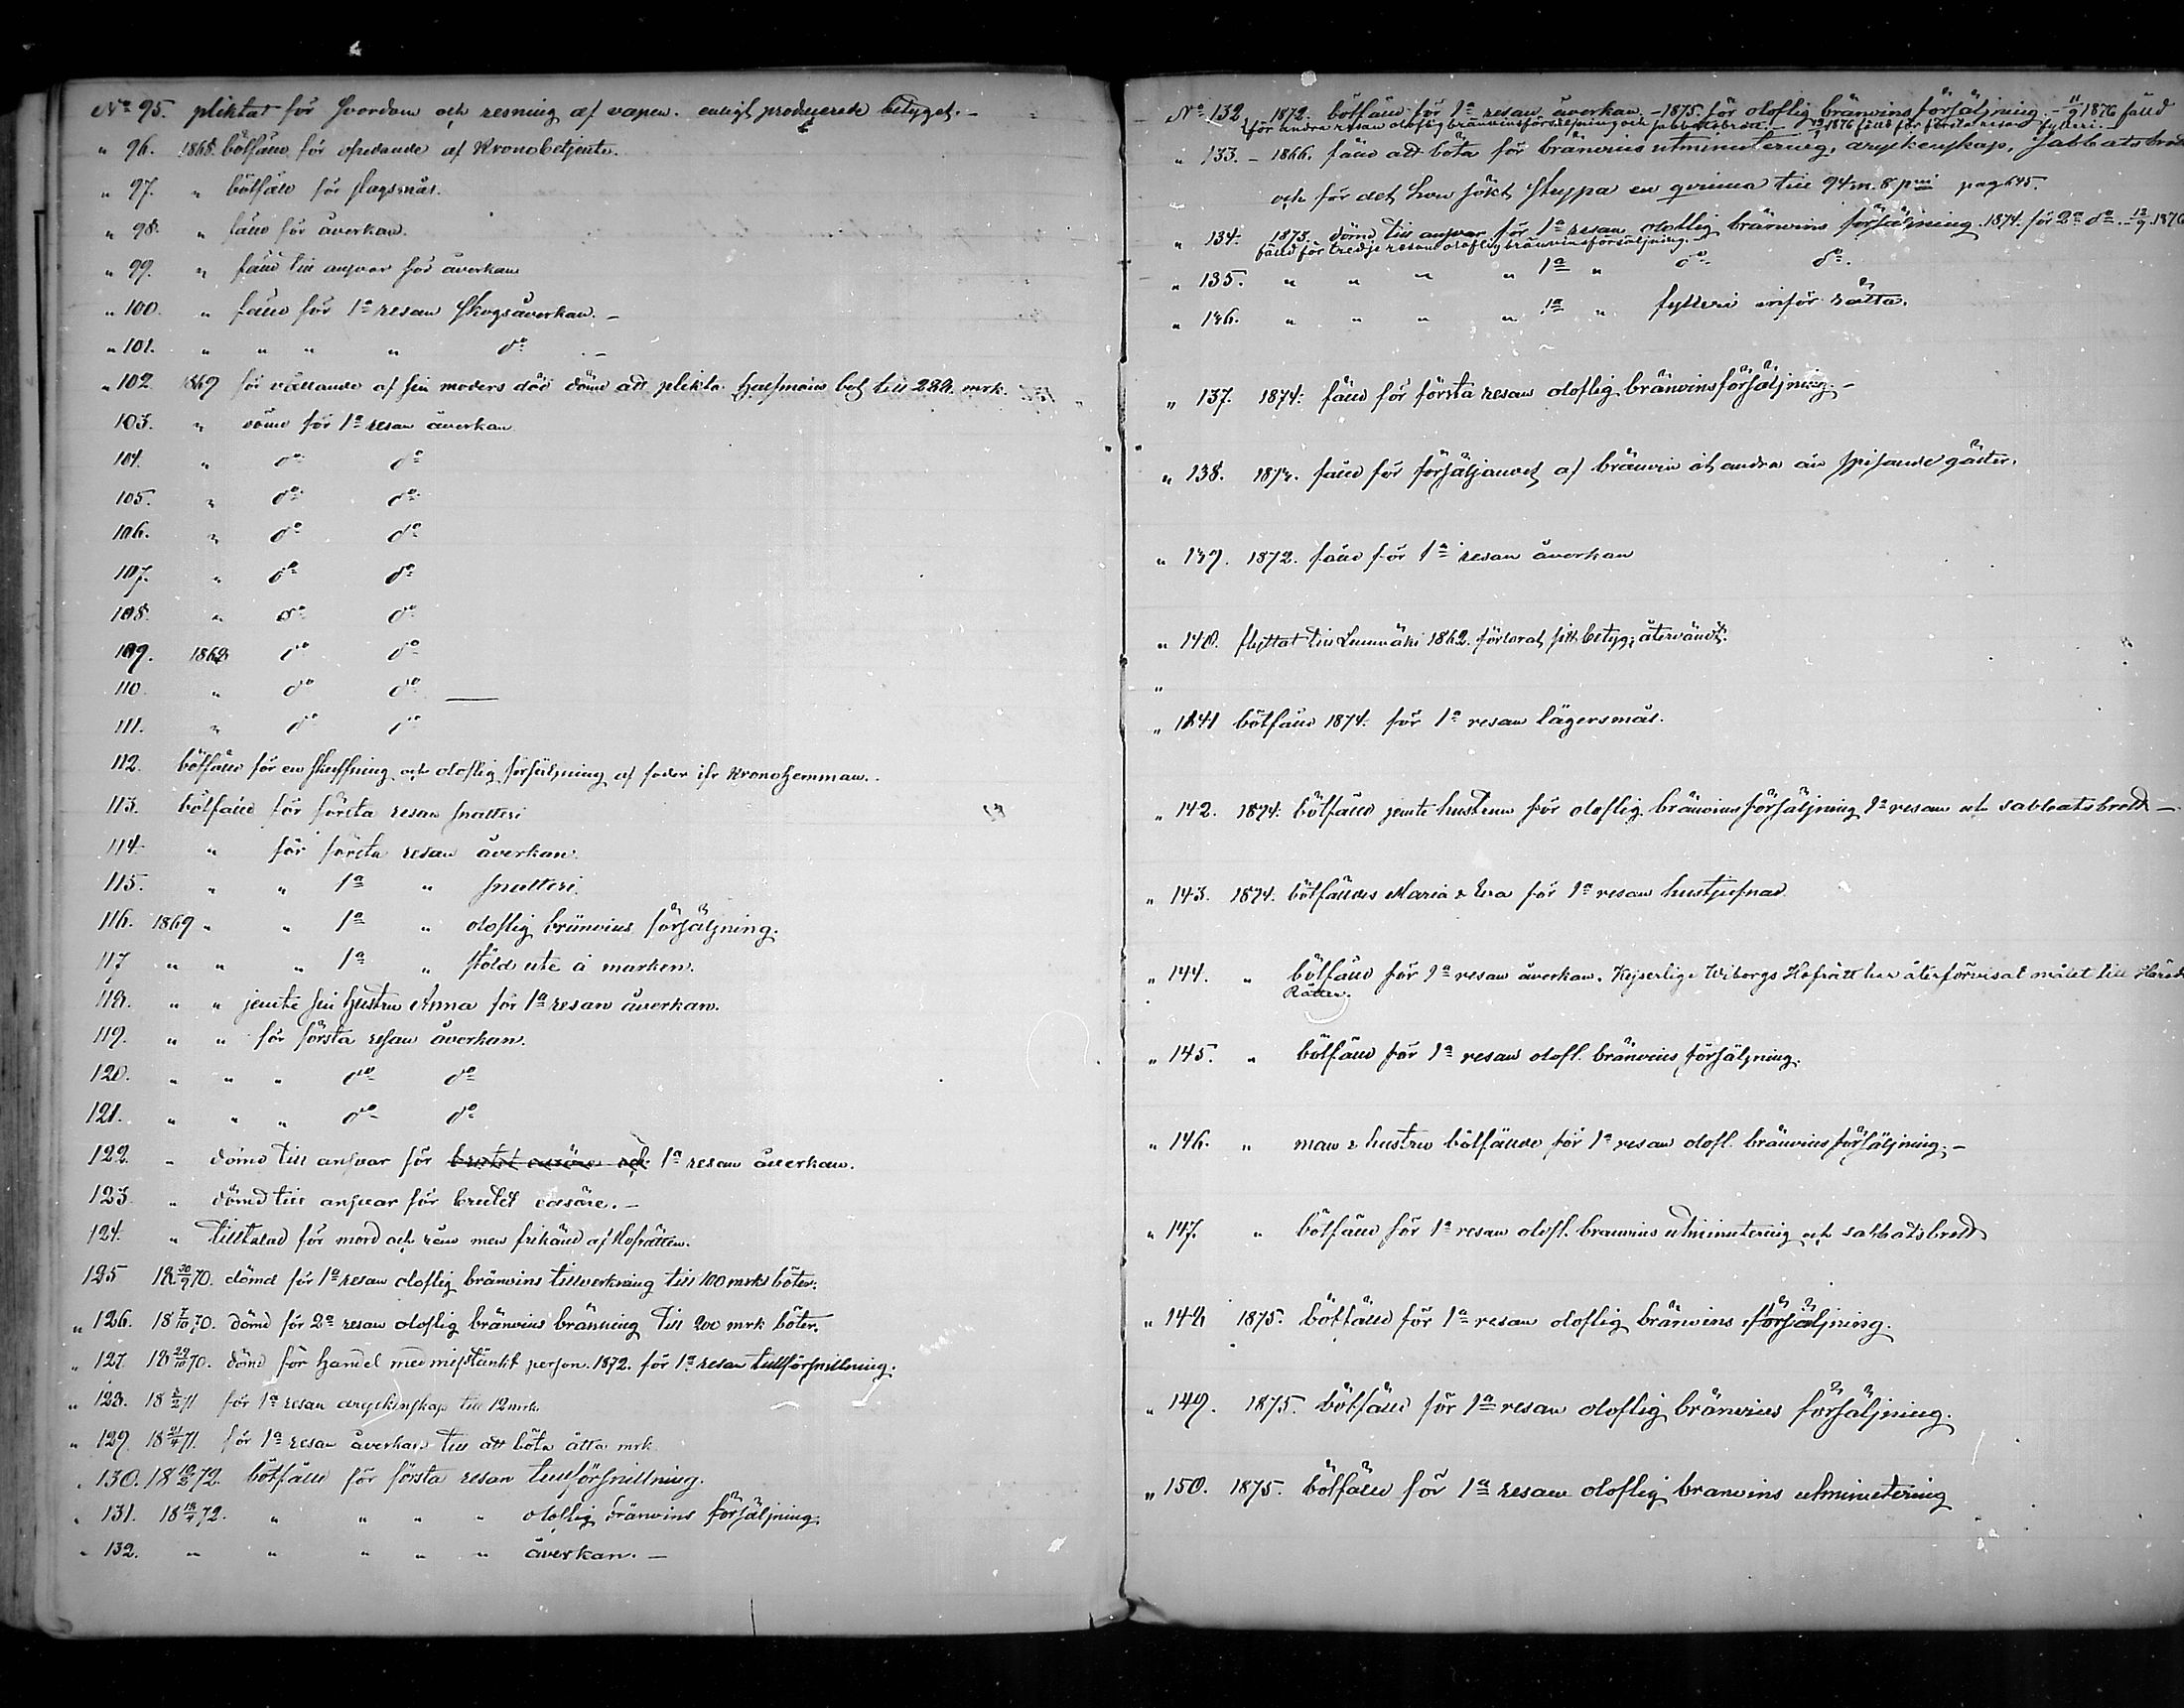 No 95. pliktat för hordom och resning af vapen. enligt producerade betyget. –
" 96. 1868. bötfäld för ofredande af Kronobetjente.
" 97. " bötfäld för slagsmål.
" 98. " fäld för åverkan.
" 99. " fäld till ansvar för åverkan
" 100. " fäld för 1a resan skogsåverkan. –
" 101. " " " " do . –
" 102 1869 för vållande af sin moders död dömd att plikta half mans bot till mrk.
103. " dömd för 1a resan åverkan
104. " do do
105. " do do
106. " do do
107. " do do
108. " do do
109. 1869 do do
110. " do do —
111. " do do
112. bötfäld för en skuffning och oloflig försäljning af foder ifr Kronohemman.
113. bötfäld för första resan snatteri
114. " för första resan åverkan.
115. " " 1a " snatteri.
116. 1869 " " 1a " oloflig bränvins försäljning.
117 " " " 1a " stöld ute å marken.
118. " " jemte sin hustru Anna för 1a resan åverkan.
119. " " för första resan åverkan.
120. " " " do do
121. " " " do do
122. " dömd till ansvar för 1a resan åverkan.
123. " dömd till ansvar för brutet edsöre. –
124. " Tilltalad för mord och rån men frikänd af Hofrätten.
125 18 30/9 70. dömd för 1a resan oloflig bränvins tillverkning till 100 mrks böter.
" 126. 18 7/10 70. dömd för 2a resan oloflig bränvins bränning till 200 mrk böter.
" 127 18 29/10 70. dömd för handel med misstänkt person. 1872. för 1a resan tullförsnillning.
" 128. 18 2/2 71 för 1a resan dryckenskap till 12 mrk.
" 129. 18 21/4 71. för 1a resan åverkan till att böta åtta mrk
" 130. 18 10/2 72. bötfäld för första resan tullförsnillning.
" 131. 18 18/4 72. " " " " oloflig bränvins försäljning.
" 132. " " " " " åverkan. –
No 132 1872. bötfäld för 1a resan åverkan. – 1875. för oloflig bränvins försäljning. – 11/9 1876 fäld
för andra resan oloflig bränvinsförsäljning och sabbatsbrott. – 1876 fäld för första resan fylleri. –
" 133. – 1866. fäld att böta för bränvins utminutering, dryckenskap, Sabbatsbrott
och för det hon sökt skyppa en qvinna till 94 m. 8 pni pag 645.
" 134. 1873. dömd till ansvar för 1a resan oloflig bränvins försäljning. 1874. för 2a do. – 12/9 1876
fäld för tredje resan oloflig bränvinsförsäljning. –
" 135. " " " " 1a " do do.
" 136. " " " " 1a " fylleri inför rätta.
" 137. 1874. fäld för första resan oloflig bränvinsförsäljning. –
" 138. 1874. fäld för försäljandet af bränvin åt andra än spisande gäster.
" 139. 1872. fäld för 1a resan åverkan
" 140. flyttat till Luumäki 1862. förlorat sitt betyg; återvändt.
"
" 141 bötfäld 1874. för 1a resan lägersmål.
" 142. 1874. bötfäld jemte hustrun för oloflig bränvinsförsäljning 1a resan och sabbatsbrott –
" 143. 1874. bötfäldes Maria & Eva för 1a resan hustjufnad
" 144. " bötfäld för 1a resan åverkan. Kejserlige Wiborgs Hofrätt har återförvisat målet till Härads
Rätten.
" 145. " bötfäld för 1a resan olofl. bränvins försäljning.
" 146. " man & hustru bötfälde för 1a resan olofl. bränvins försäljning. –
" 147. " bötfäld för 1a resan olofl. branvins utminutering och sabbatsbrott
" 148 1875. bötfäld för 1a resan oloflig bränvins försäljning.
" 149. 1875. bötfäld för 1a resan oloflig bränvins försäljning.
" 150. 1875. bötfäld för 1a resan oloflig branvins utminutering